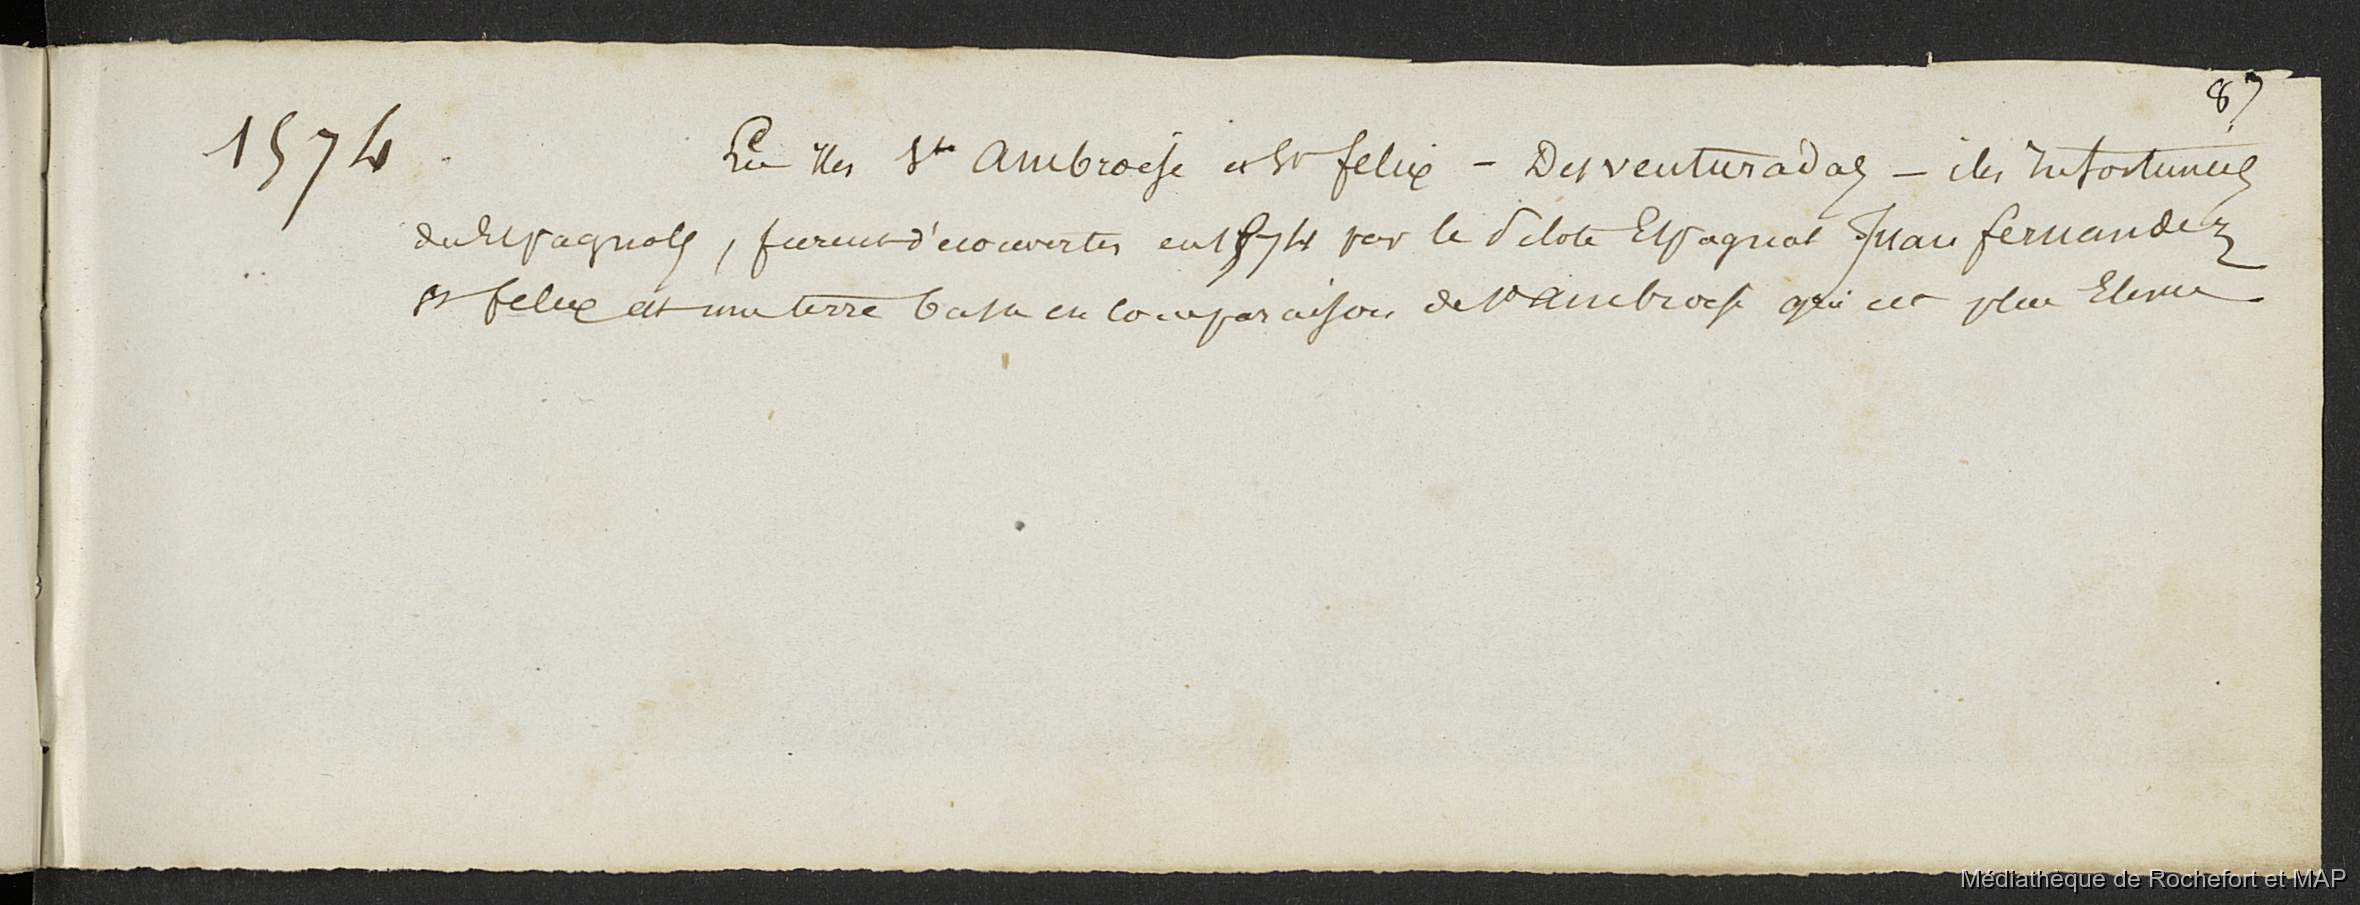 87
1574
Les Iles Ste Ambroise et St felix – Desventuradas – iles Infortunées
des Espagnols, furent découvertes en 1574 par le Pilote Espagnol Juan fernandez
St felix est une terre basse en comparaison de St Ambroise qui est plus Elevée
Médiathèque de Rochefort et MAP